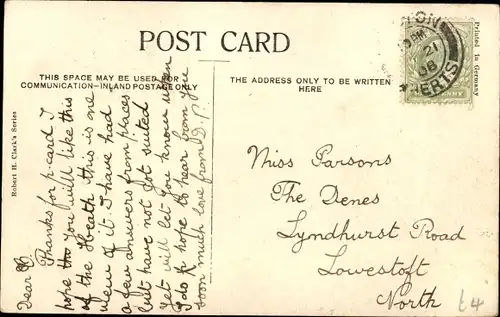 POST CARD
THIS SPACE MAY BE USED FOR
COMMUNICATION—INLAND POSTAGE ONLY
THE ADDRESS ONLY TO BE WRITTEN
HERE
Printed in Germany
Robert H. Clark's Series
21
08
HERTS
Dear
Thanks for p.card I
hope you will like this
of the Heath this is one
view of it. I have had
a few answers from places
but have not got suited
yet will let you know when
I do hope to hear from you
soon much love from D P
Miss Parsons
The Denes
Lyndhurst Road
Lowestoft
North
£4